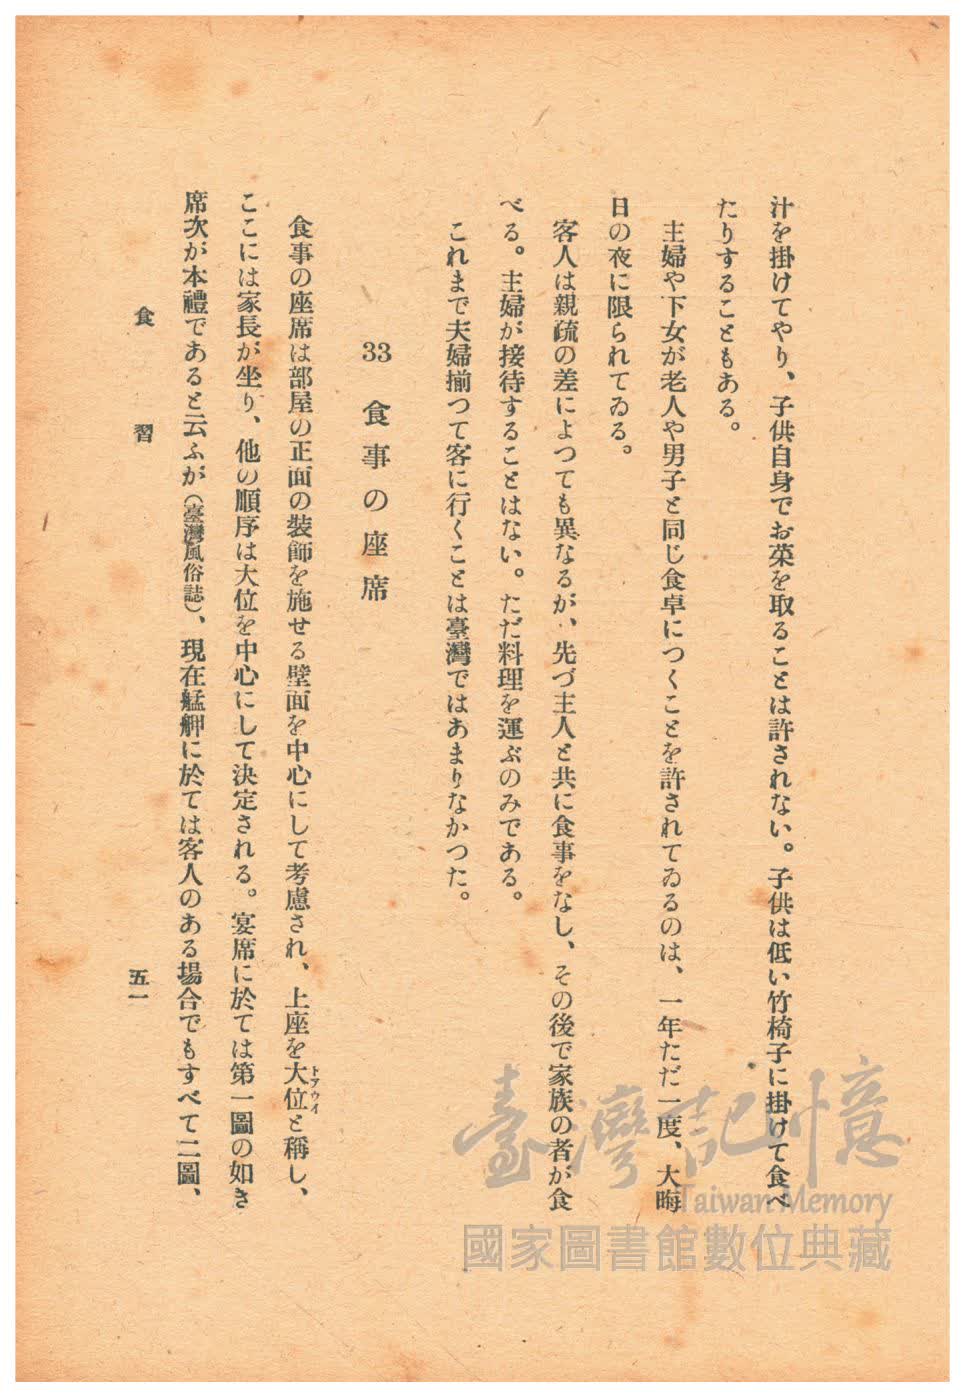 汁を掛けてやり、子供自身でお菜を取ることは許されない。子供は低い竹椅子に掛けて食べ
たりすることもある。
主婦や下女が老人や男子と同じ食卓につくことを許されてゐるのは、一年ただ一度、大晦
日の夜に限られてゐる。
客人は親疏の差によつても異なるが、先づ主人と共に食事をなし、その後で家族の者が食
べる。主婦が接待することはない。ただ料理を運ぶのみである。
これまで夫婦揃つて客に行くことは臺灣ではあまりなかつた。
33 食事の座席
食事の座席は部屋の正面の装飾を施せる壁面を中心にして考慮され、上座を大位と稱し、
トアウイ
ここには家長が坐り、他の順序は大位を中心にして決定される。宴席に於ては第一圖の如き
席次が本禮であると云ふが（臺灣風俗誌）、現在艋舺に於ては客人のある場合でもすべて二圖、
食習
五一
臺灣記憶
Taiwan Memory
國家圖書館數位典藏